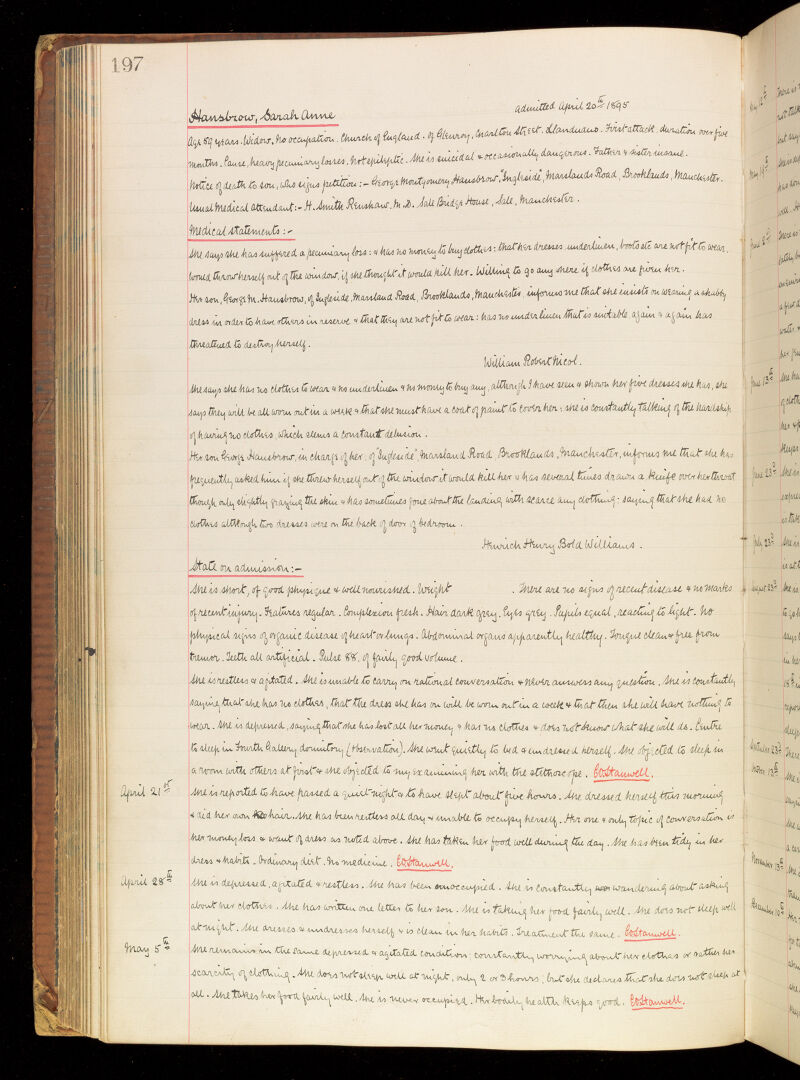 197
admitted April 20th 1895
Hansbrow, Sarah Anne
Age 59 years. Widow. No occupation. Church of England. of Glenroy, Charlton Street. Llandudno. First attack, duration over five
months. Cause, heavy pecuniary losses. Not epileptic. She is suicidal & occasionally dangerous. Father & sister insane.
Notice of death to son, who signs petition:- George Montgomery Hansbrow, "Ingleside", Marslands Road, Brooklands, Manchester.
Usual Medical attendant:- H. Smith Renshaw. M.D. Sale Bridge House, Sale, Manchester.
Medical Statements:-
She says she has suffered a pecuniary loss: & has no money to buy clothes: that her dresses, underlinen, boots etc are not fit to wear.
Would throw herself out of the window, if she thought it would kill her. Willing to go any where if clothes are given her.
Her son, George M. Hansbrow, of Ingleside, Marsland Road, Brooklands, Manchester, informs me that she insists on wearing a shabby
dress in order to have others in reserve & that they are not fit to wear: has no underlinen that is suitable again & again has
threatened to destroy herself.
William Robert Nicol.
She says she has no clothes to wear & no underlinen & no money to buy any, although I have seen & shown her five dresses she has, she
says they will be all worn out in a week & that she must have a coat of paint to cover her; she is constantly talking of the hardship
of having no clothes, which seems a constant delusion.
Her son George Hansbrow, in charge of her, of "Ingleside" Marsland Road Brooklands, Manchester, informs me that she has
frequently asked him if she threw herself out of the window it would kill her & has several times drawn a knife over her throat
though only slightly grazing the skin & has sometimes gone about the landing with scarce any clothing: saying that she had no
clothes although two dresses were on the back of door of bedroom.
Henrich Henry Bold Williams.
State on admission:-
She is short, of good physique & well nourished. Weight . There are no signs of recent disease & no marks
of recent injury. Features regular. Complexion fresh. Hair dark grey. Eyes grey. Pupils equal, reacting to light. No
physical signs of organic disease of heart or lungs. Abdominal organs apparently healthy. Tongue clean & free from
tremor. Teeth all artificial. Pulse 88, of fairly good volume.
She is restless & agitated. She is unable to carry on rational conversation & never answers any question. She is constantly
saying that she has no clothes, that the dress she has on will be worn out in a week & that then she will have nothing to
wear. She is depressed, saying that she has lost all her money & has no clothes & does not know what she will do. Centre
to sleep in Fourth Gallery dormitory (observation). She went quietly to bed & undressed herself. She objected to sleep in
a room with others at first & she objected to my examining her with the stethoscope. CStanwell.
April 21st She is reported to have passed a quiet night & to have slept about five hours. She dressed herself this morning
& did her own hair. She has been restless all day & unable to occupy herself. Her one & only topic of conversation is
her money loss & want of dress as noted above. She has taken her food well during the day. She has been tidy in her
dress & habits. Ordinary diet. No medicine. CStanwell.
April 28th She is depressed, agitated & restless. She has been unoccupied. She is constantly wandering about asking
about her clothes. She has written one letter to her son. She is taking her food fairly well. She does not sleep well
at night. She dresses & undresses herself & is clean in her habits. Treatment the same. CStanwell.
May 5th She remains in the same depressed & agitated condition, constantly worrying about her clothes or rather her
scarcity of clothing. She does not sleep well at night, only 2 or 3 hours, but she declares that she does not sleep at
all. She takes her food fairly well. She is never occupied. Her bodily health keeps good. CStanwell.